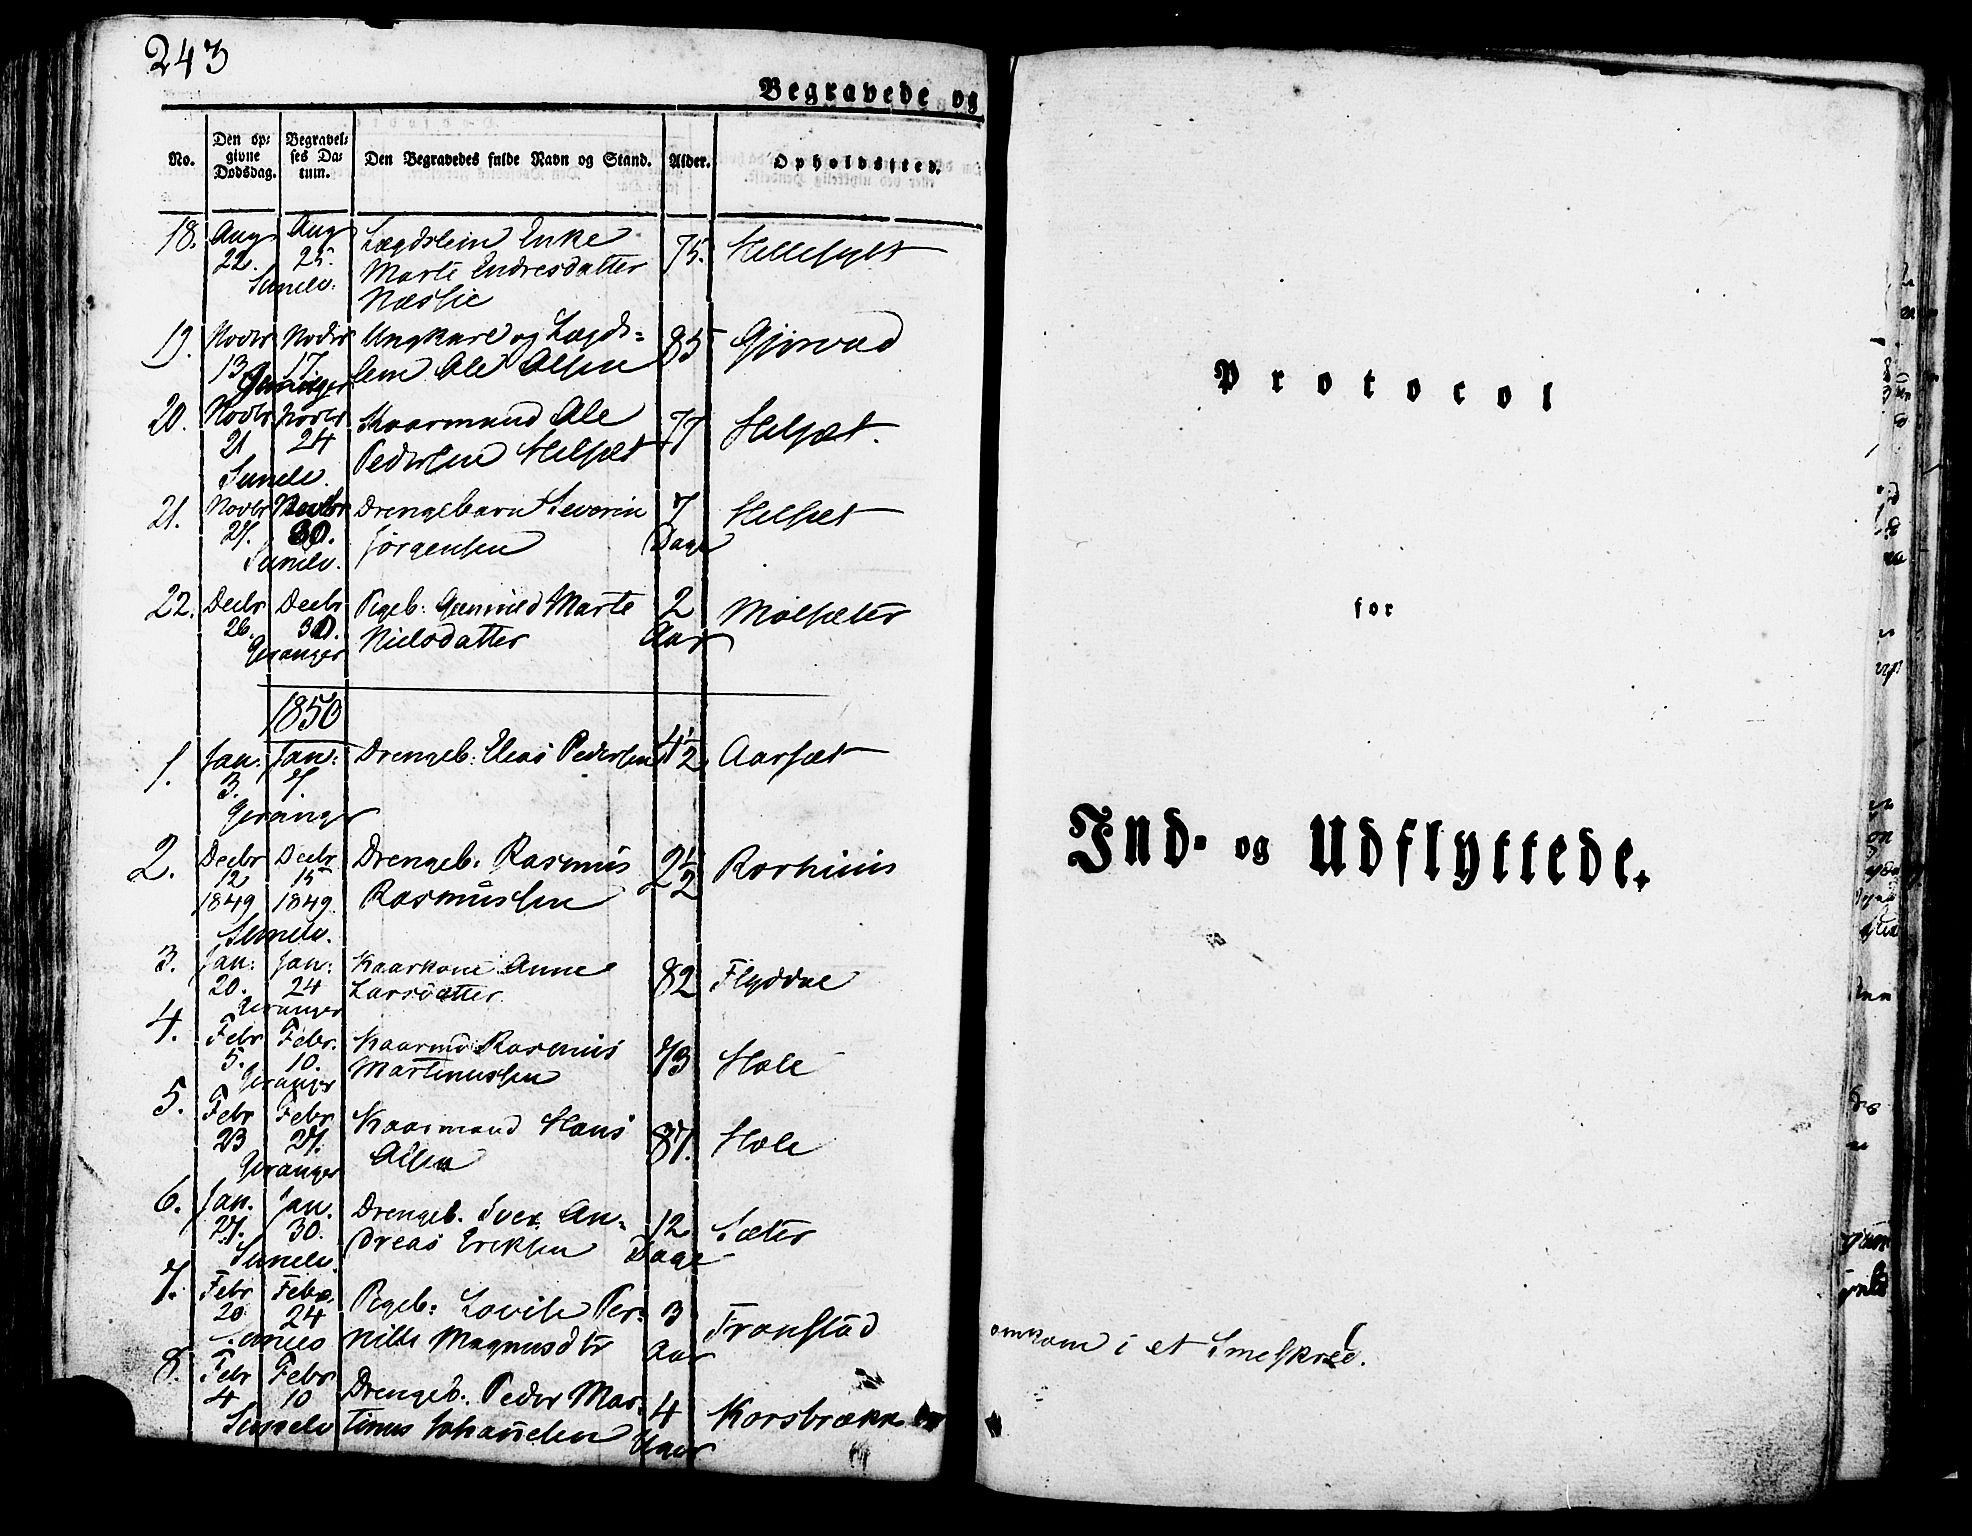 243
Begravede og
No.
Den op-
givne
Dødsdag.
Begravel-
ses Da-
tum.
Den Begravedes fulde Navn og Stand.
Alder.
Opholdssted.
18. Aug 22. Aug 25. Lægdslem Enke 75. Hellesylt
Sunelv. Marte Endresdatter
19. Novbr 13 Novbr 17. Ungkarl og Lægds- 85 Gjørvad
Geranger lem Ole Olsen
20. Novbr 21 Novbr 24 Kaarmand Ole 77 Helsæt.
Sunelv. Pedersen Helsæt
21. Novbr 27. Novbr 30. Drengebarn Severin 7 Helsæt
Sunelv. Jørgensen Dage
22. Decbr 26. Decbr 30. Pigeb: Gunnild Marte 2 Molsæter
Geranger Nielsdatter Aar
1850
1. Jan: 3. Jan: 7. Drengeb: Elias Pedersen 4 1/2 Aarsæt
Geranger
2. Decbr 12 1849 Decbr 15 1849. Drengeb. Rasmus 2 1/2
Sunelv. Rasmussen
3. Jan: 20. Jan: 24 Kaarkone Anne 82 Flyddal
Geranger Larsdatter
4. Febr 5. Febr. 10. Kaarmd Rasmus 73 Hole
Geranger Martinussen
5. Febr 23 Febr 27. Kaarmand Hans 87. Hole
Geranger Olsen
6. Jan. 27. Jan. 30. Drengeb. Iver An- 12 Sæter
Sunelv. dreas Eriksen Dage
7. Febr 20 Febr. 24 Pigeb: Lovise Per- 3 Tronstad
nille Magnusdtr Aar
8. Febr 4 Febr 10 Drengeb. Peder Mar- 4 Korsbrække
Sunelv tinus Johannesen Uger
Protocol
for
Ind- og Udflyttede.
omkom i et Sneskred.